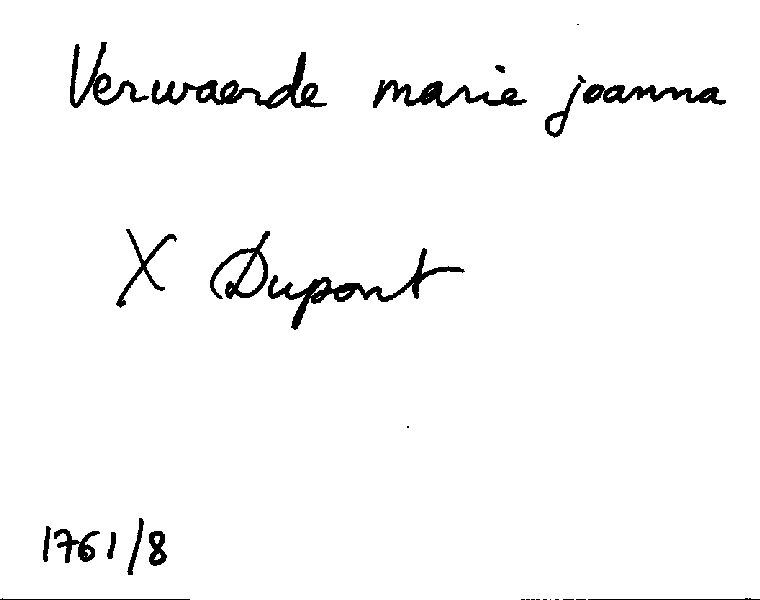 Verwaerde marie joanna
X Dupont
1761/8